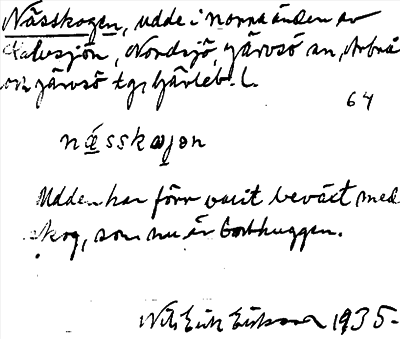 Nässkogen, udde i norra änden av
Halvsjön, Nordsjö, Järvsö sn, Arbrå
och Järvsö tg, Gävleb. l.
64
næsskɷjɘn
Udden har förr varit beväxt med
skog, som nu är borthuggen.
Nils Erik Eriksson 1935.